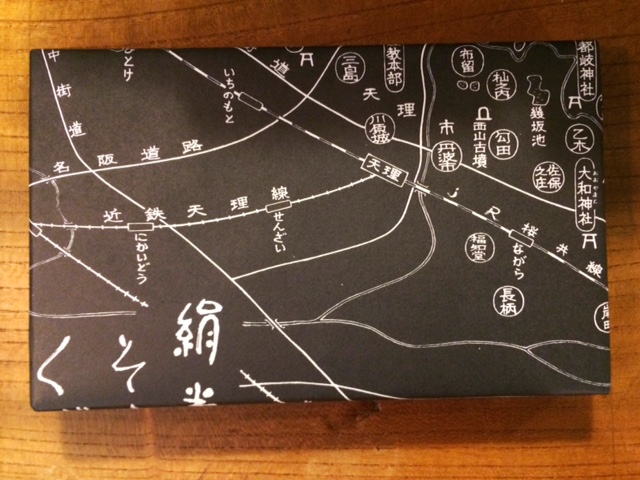 中街道
びとけ
いちのもと
道
三島
教本部
天理市
布留
杣之内
都岐神社
川原城
丹波市
西山古墳
勾田
幾坂池
乙木
佐保之庄
大和神社
おおやまと
名阪道路
天理
近鉄天理線
せんざい
にかいどう
JR桜井線
ながら
福智堂
長柄
絹
そ
く